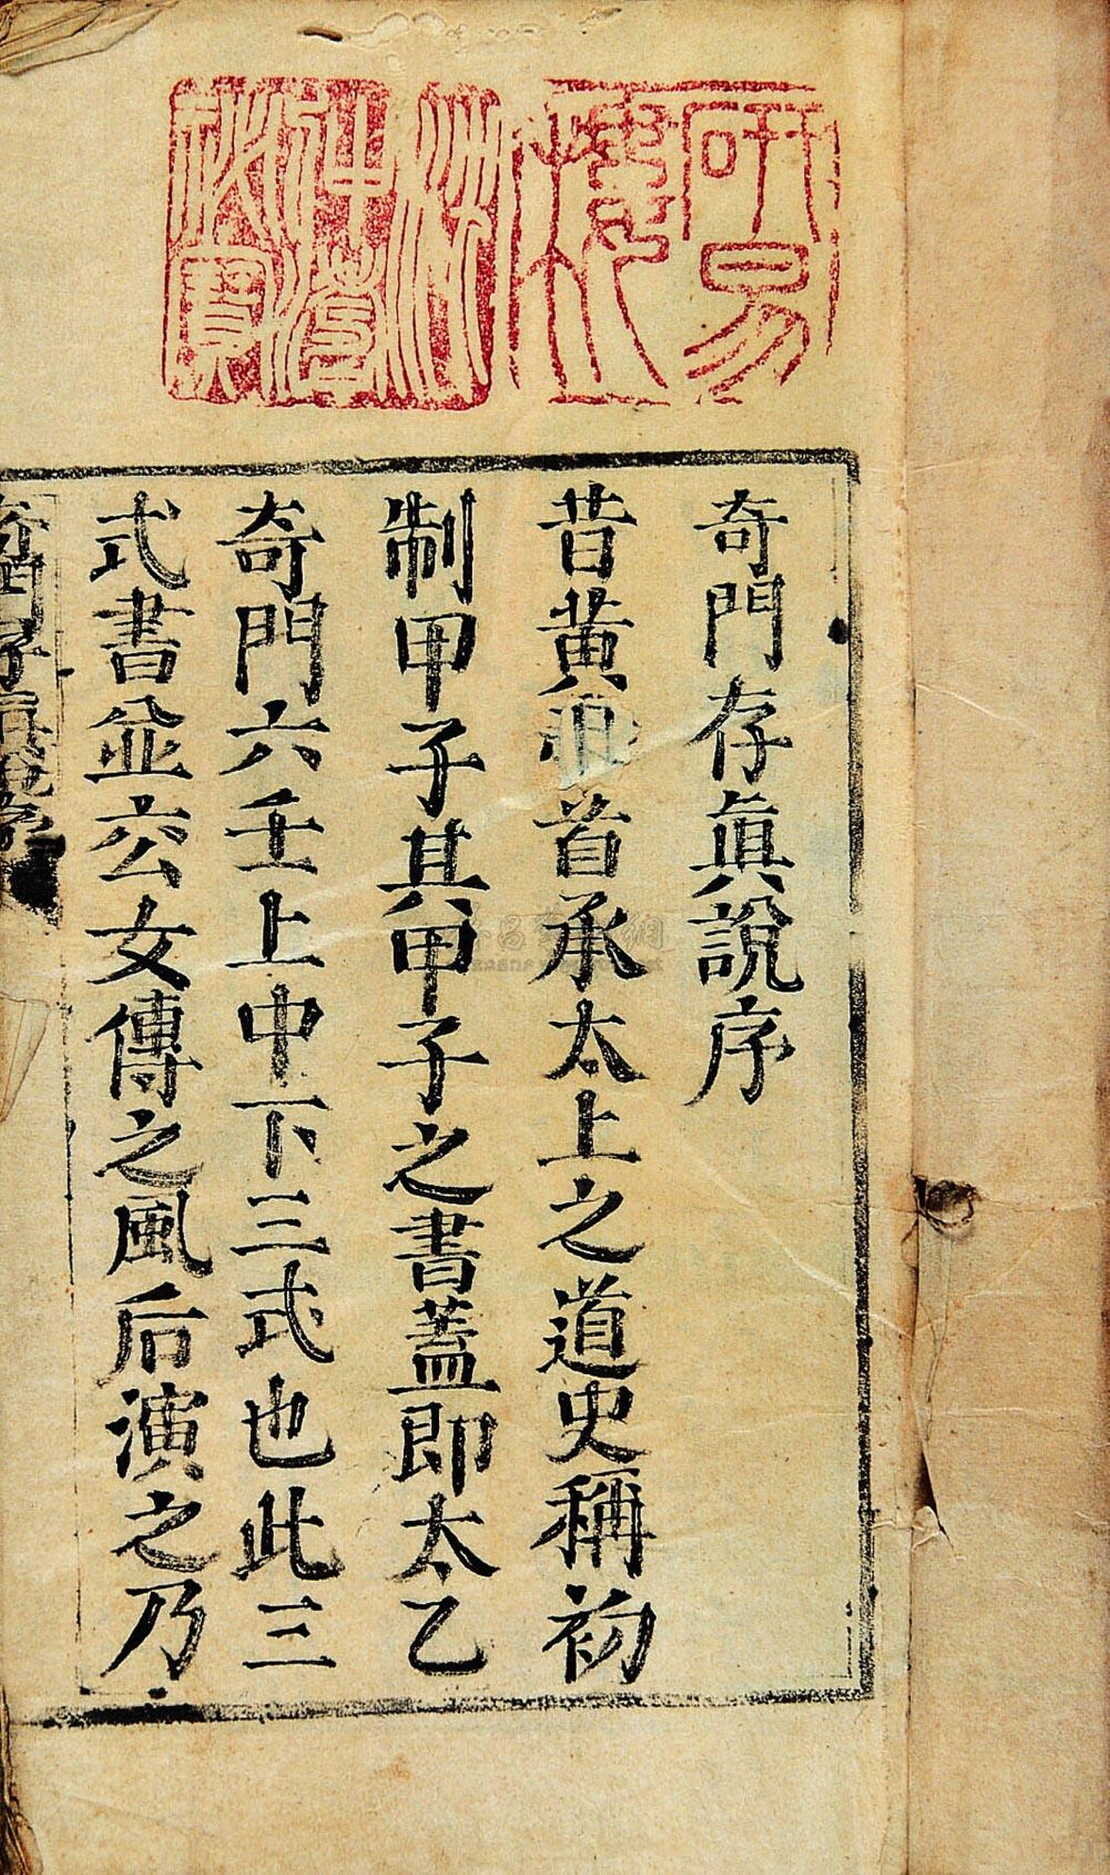 奇門存眞說序
昔黃帝首承太上之道史稱初
制甲子其甲子之書蓋即太乙
奇門六壬上中下三式也此三
式書並玄女傳之風后演之乃
研易樓